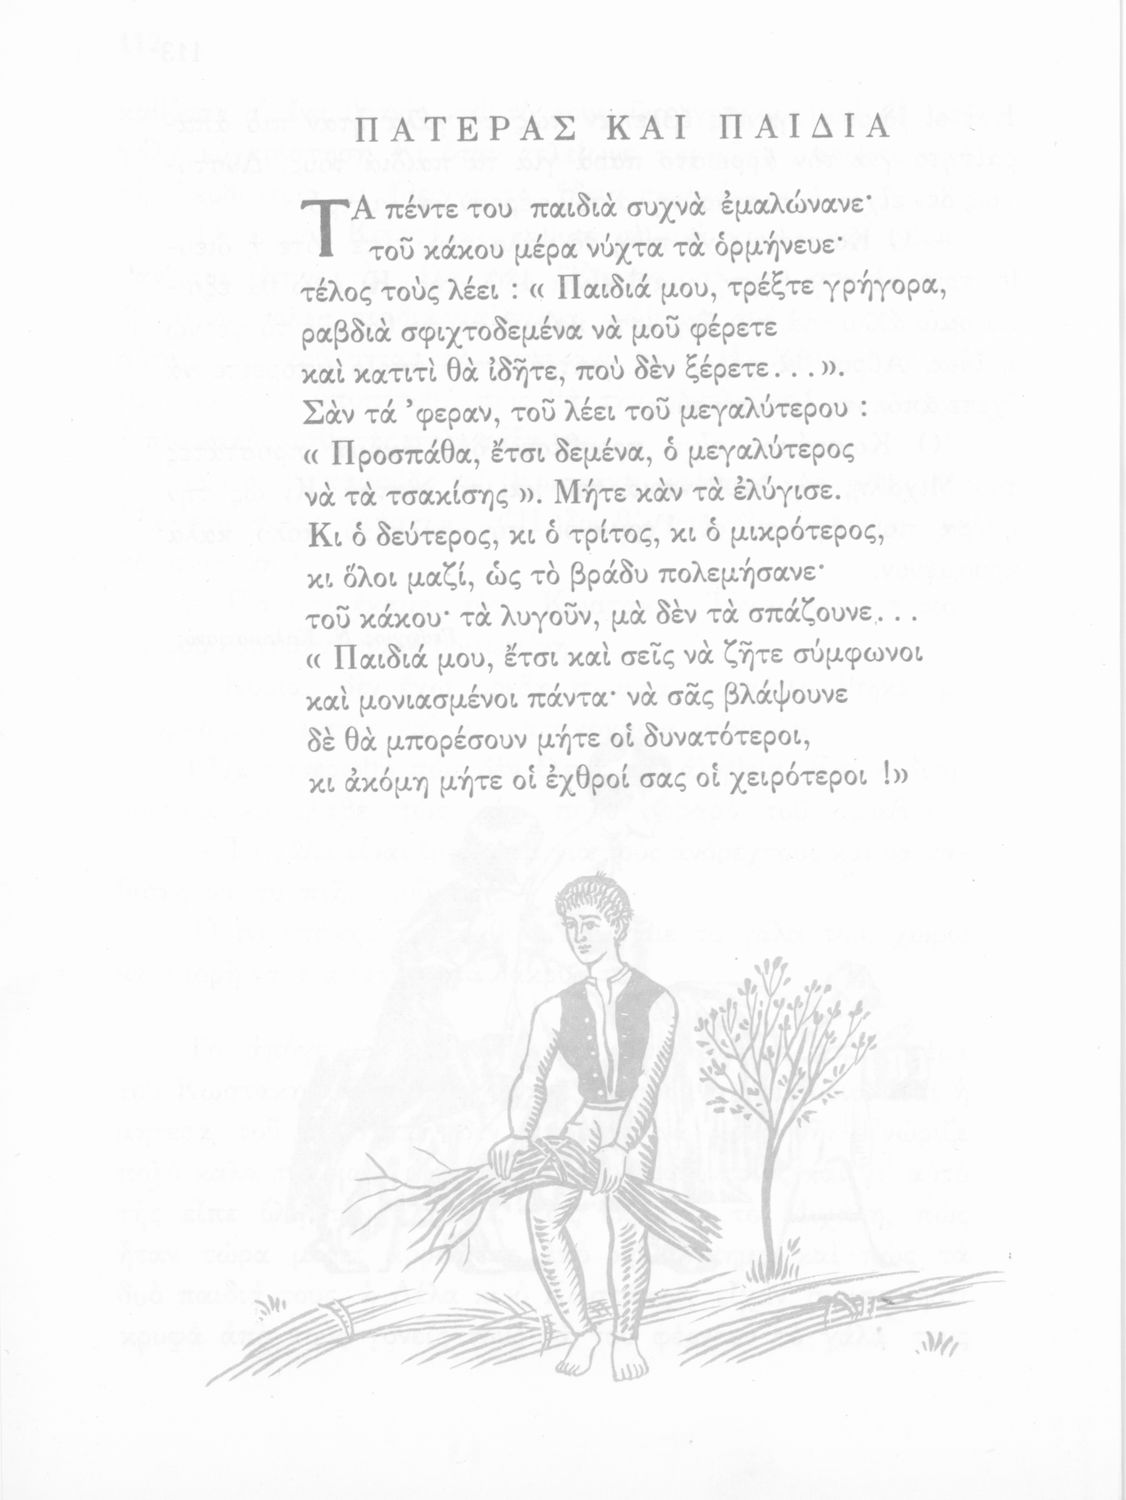 ΠΑΤΕΡΑΣ ΚΑΙ ΠΑΙΔΙΑ
ΤΑ πέντε του παιδιὰ συχνὰ ἐμαλώνανε·
τοῦ κάκου μέρα νύχτα τὰ ὁρμήνευε·
τέλος τοὺς λέει : « Παιδιά μου, τρέξτε γρήγορα,
ραβδιὰ σφιχτοδεμένα νὰ μοῦ φέρετε
καὶ κατιτὶ θὰ ἰδῆτε, ποὺ δὲν ξέρετε...».
Σὰν τά ’φεραν, τοῦ λέει τοῦ μεγαλύτερου :
« Προσπάθα, ἔτσι δεμένα, ὁ μεγαλύτερος
νὰ τὰ τσακίσης ». Μήτε κὰν τὰ ἐλύγισε.
Κι ὁ δεύτερος, κι ὁ τρίτος, κι ὁ μικρότερος,
κι ὅλοι μαζί, ὡς τὸ βράδυ πολεμήσανε·
τοῦ κάκου· τὰ λυγοῦν, μὰ δὲν τὰ σπάζουνε...
« Παιδιά μου, ἔτσι καὶ σεῖς νὰ ζῆτε σύμφωνοι
καὶ μονιασμένοι πάντα· νὰ σᾶς βλάψουνε
δὲ θὰ μπορέσουν μήτε οἱ δυνατότεροι,
κι ἀκόμη μήτε οἱ ἐχθροί σας οἱ χειρότεροι !»